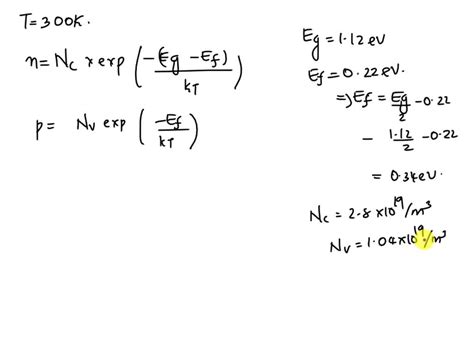 T=300K.
n = Nc × exp (-(Eg - Ef) / kT)
p = Nv exp (-Ef / kT)
Eg = 1.12 eV
Ef = 0.22 eV.
=) Ef = Eg/2 - 0.22
- 1.12/2 - 0.22
= 0.34 eV.
Nc = 2.8 × 10^19 / m^3
Nv = 1.04 × 10^19 / m^3